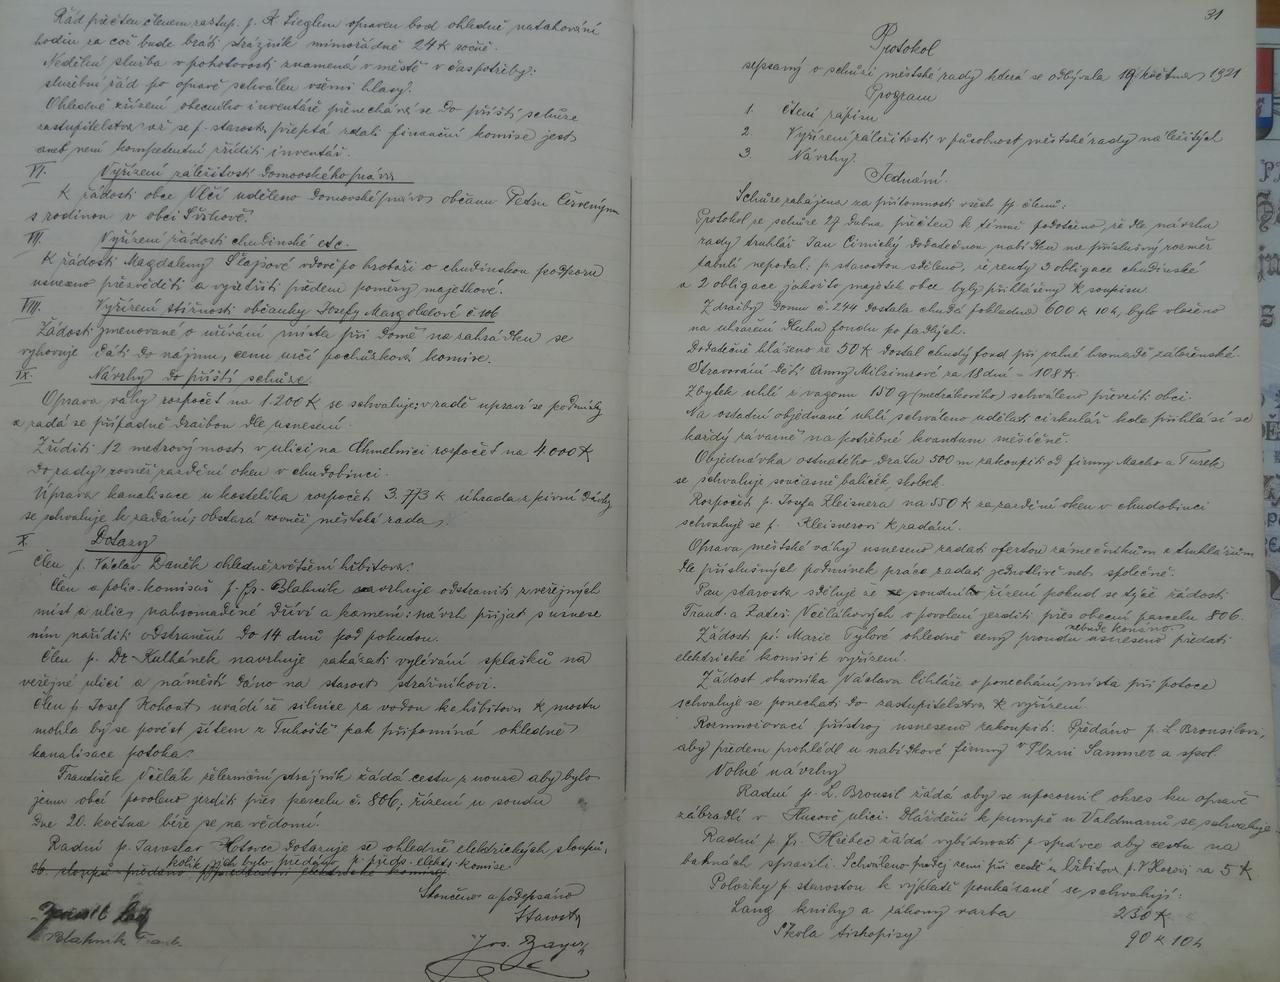 Řád přečten členem zastup. p. K Sieglem opraven bod ohledně natahování
hodin za což bude brati strážník mimořádně 24 K ročně.
Nedělní služba v pohotovosti znamená v městě v čas potřeby:
služební řád po opravě schválen všemi hlasy.
Ohledně zřízení obecního inventáře přenechává se do příští schůze
zastupitelstva až se p. starosta přeptá zdali finanční komise jest
aneb není kompetentní zříditi inventář.
VI. Vyřízení záležitosti domovského práva
K žádosti obce Vlčí uděleno domovské právo občanu Petru Červenému
s rodinou v obci
VII. Vyřízení žádosti chudinské etc.
K žádosti Magdaleny vdově po hrobaři o chudinskou podporu
usneseno přesvědčiti a vyšetřiti předem poměry majetkové.
VIII. Vyřízení stížnosti občanky Josefy č. 106
Žádosti jmenované o užívání místa při domě na zahrádku se
vyhovuje dáti do nájmu, cenu určí pochůzková komise.
IX. Návrhy do příští schůze.
Oprava váhy rozpočet na 1.200 K se schvaluje; v radě upraví se podmínky
a zadá se případně dražbou dle usnesení.
Zříditi 12 metrový most v ulici na Chmelnici rozpočet na 4.000 K
do rady: rovněž zardění oken v chudobinci.
Úprava kanalisace u kostelíka rozpočet 3.773 K úhrada z pivní dávky
se schvaluje k zadání; obstará rovněž městská rada.
X. Dotazy
Člen p. Václav Daněk ohledně zvětšení hřbitova.
Člen a polic. komisař p. Fr. Blahník navrhuje odstraniti z veřejných
míst a ulic nahromaděné dříví a kamení: návrh přijat s usnese
ním naříditi odstranění do 14 dnů pod pokutou.
Člen p. Dr. Kulhánek navrhuje zakázati vylévání splašků na
veřejné ulici a náměstí dáno na starost strážníkovi.
Člen p. Josef Kohout uvádí že silnice za vodou ke hřbitovu k mostu
mohla by se povést šífem z Tuhoště pak připomíná ohledně
kanalisace potoka.
František Včelák železniční strážník žádá cestu z nouze aby bylo
jemu obcí povoleno jezditi přes parcelu č. 806; řízení u soudu
dne 20. května béře se na vědomí.
Radní p. Jaroslav Hotovec dotazuje se ohledně elektrických sloupů,
kolik jich bylo předáno, p. předs. elektr. komise
Skončeno a podepsáno
Starosta
Jos. Bayer
Blahník Frant.
31
Protokol
sepsaný o schůzi městské rady která se odbývala 19 května 1921
Program
1. Čtení zápisu
2. Vyřízení záležitostí v působnost městské rady náležitých
3. Návrhy.
Jednání.
Schůze zahájena za přítomnosti všech pp. členů:
Protokol ze schůze 27 dubna přečten k témuž podotčeno, že dle návrhu
rady truhlář Jan Cimický dodatečnou nabídku na příslušný rozměr
tabulí nepodal: p. starostou sděleno, že renty 3 obligace chudinské
a 2 obligace jakožto majetek obce byly přihlášeny k soupisu.
Z dražby domu č. 244 dostala chudá pokladna 600 K 10 h, bylo vloženo
na uhražení fondu po
Dodatečně hlášeno že 50 K dostal chudý fond při valné hromadě záložénské.
Stravování dětí Anny za 18 dní = 108 K.
Zbytek uhlí z vagonu 150 q schváleno převzíti obcí.
Na ostatní objednané uhlí schváleno udělati cirkulář kde přihlásí se
každý závazně na potřebné kvantum měsíčně.
Objednávka ostnatého drátu 500 m zakoupiti od firmy Macho a Turek
se schvaluje současně balíček skobek.
Rozpočet p. Josefa Kleisnera na 550 K zardění oken v chudobinci
schvaluje se p. Kleisnerovi k zadání.
Oprava městské váhy usneseno zadati ofertou zámečníkům a truhlářům
dle příslušných podmínek práce zadati jednotlivě neb společně.
Pan starosta sděluje že soudní řízení pokud se týče žádosti
Frant. a Včelákových o povolení jezditi přes obecní parcelu 806.
nebude konáno.
Žádost pí. Marie Tylové ohledně ceny proudu usneseno předati
elektrické komisi k vyřízení.
Žádost obuvníka Václava Cihláře o ponechání místa při potoce
schvaluje se ponechati do zastupitelstva k vyřízení.
Rozmnožovací přístroj usneseno zakoupiti: Předáno p. L Brousilovi,
aby předem prohlédl u nabídkové firmy v Plzni Sammer a spol.
Volné návrhy
Radní p. L. Brousil žádá aby se upozornil okres ku opravě
zábradlí v Husově ulici. Dláždění k pumpě u Valdmanů se schvaluje.
Radní p. Fr. Hřebec žádá vybídnouti p. správce aby cestu na
baknách spravili. Schváleno prodej zemi při cestě u hřbitova p. V. za 5 K
Položky p. starostou k výplatě poukázané se schvalují:
Lang knihy a záhony vazba 230 K
Škola tiskopisy 90 K 10 h